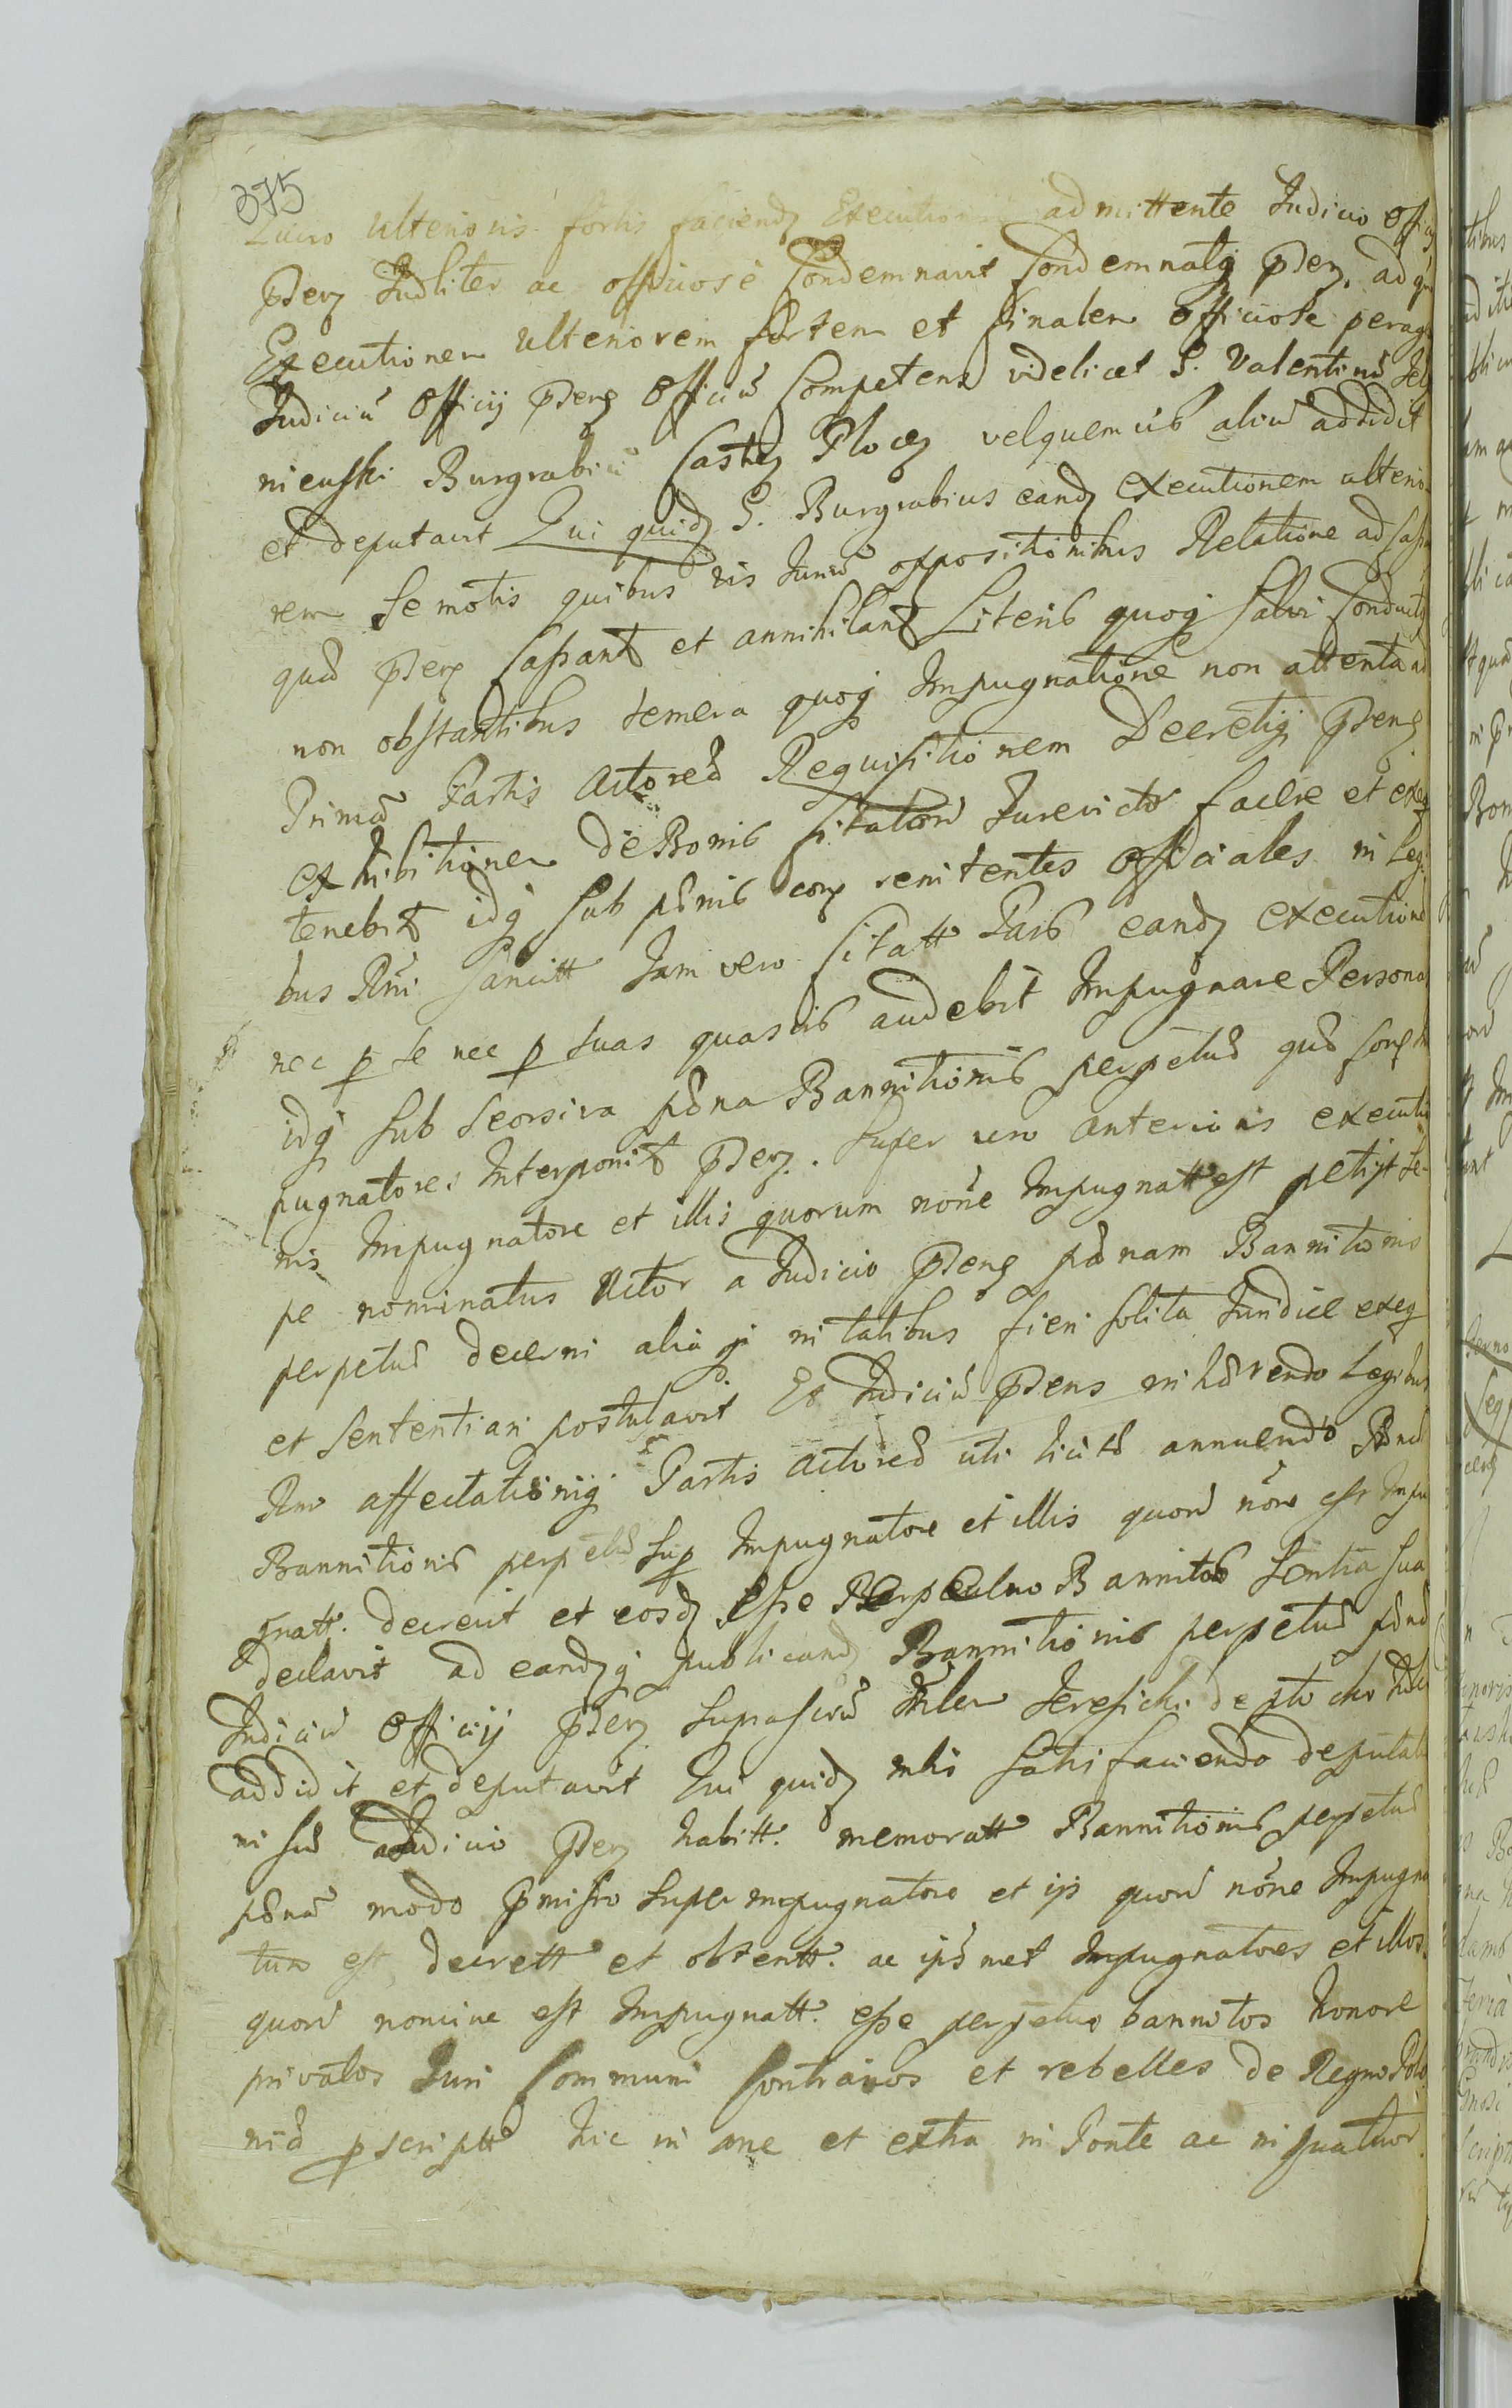 375
Lucro ulterioris fortis faciendȝ Executionis admittente Judicio Officÿ
pñs Judliter ac officiosè Condemnavit Condemnatqȝ pñs. ad qm
Executionem ulteriorem fortem et finalem officiose perag
Judiciũ Officij pñs Officiũ Competens videlicet G. Valentinũ
nieuski Burgrabiũ Castrȝ Plocȝ velquemvis aliũ addidit
et deputavit Qui quidȝ G. Burgrabius eandȝ executionem ulterio
rem Semotis quibus vis Juriũ oppositionibus Relatione ad
quã pñs Cassant et annihilant Literis quoqȝ Salvi Conductȝ
non obstantibus temera quoqȝ Impugnatione non attenta ad
Primã Partis Actoreæ Requisitionem Decretiqȝ pñs
exhibitionem de Bonis Citatorũ Jurevictorũ facere et exeq
tenebit idqȝ Sub pœnis conȝ renitentes officiales in Legi
bus Rñi Sancitt Jam vero Citatt Pars eandȝ executionẽ
nec ꝑ se nec ꝑ suas quasvis audebit Impugnare Personas
idqȝ sub seorsiva pœna Bannitionis perpetuæ quã conȝ Im
pugnatores Interponit pñs. Super vero anterioris executio
nis Impugnatore et illis quorum noñe Impugnatt est petijt Sæ
pe nominatus Actor a Judicio pñs pœnam Bannitionis
perpetuæ decerni aliaqȝ in talibus fieri solita Juridice exeq
et Sententiari postulavit Et Judiciũ pñs inhærendo Legibus
Rni affectationiqȝ Partis Actoreæ uti licitæ annuendo pœnã
Bannitionis perpetuæ Sup Impugnatore et illis quorũ noñe est Impu
gnatt. decrevit et eosdȝ Esse Perpetuo Bannitos Sentia sua
declavit ad eandȝqȝ publicandȝ Bannitionis perpetuæ pœnã
Judiciũ Officij pñs Suprascrũ Mlem Jeresicki de
addidit et deputavit Qui quidȝ mlis Satisfaciendo deputatio
ni suæ a Judicio pñs habitt. memoratt Bannitionis perpetuæ
pœnã modo pmisso super impugnatore et ijs quorũ noñe Impugna
tum est decrett et obtentt. ac ipsosmet Impugnatores et illos
quorũ nomine est Impugnatt. esse perpetuo bannitos honore
privatos Juri Communi Contrarios et rebelles de Regno Polo
niæ ꝓscriptt hic in arce et extra in Ponte ac in quatuor